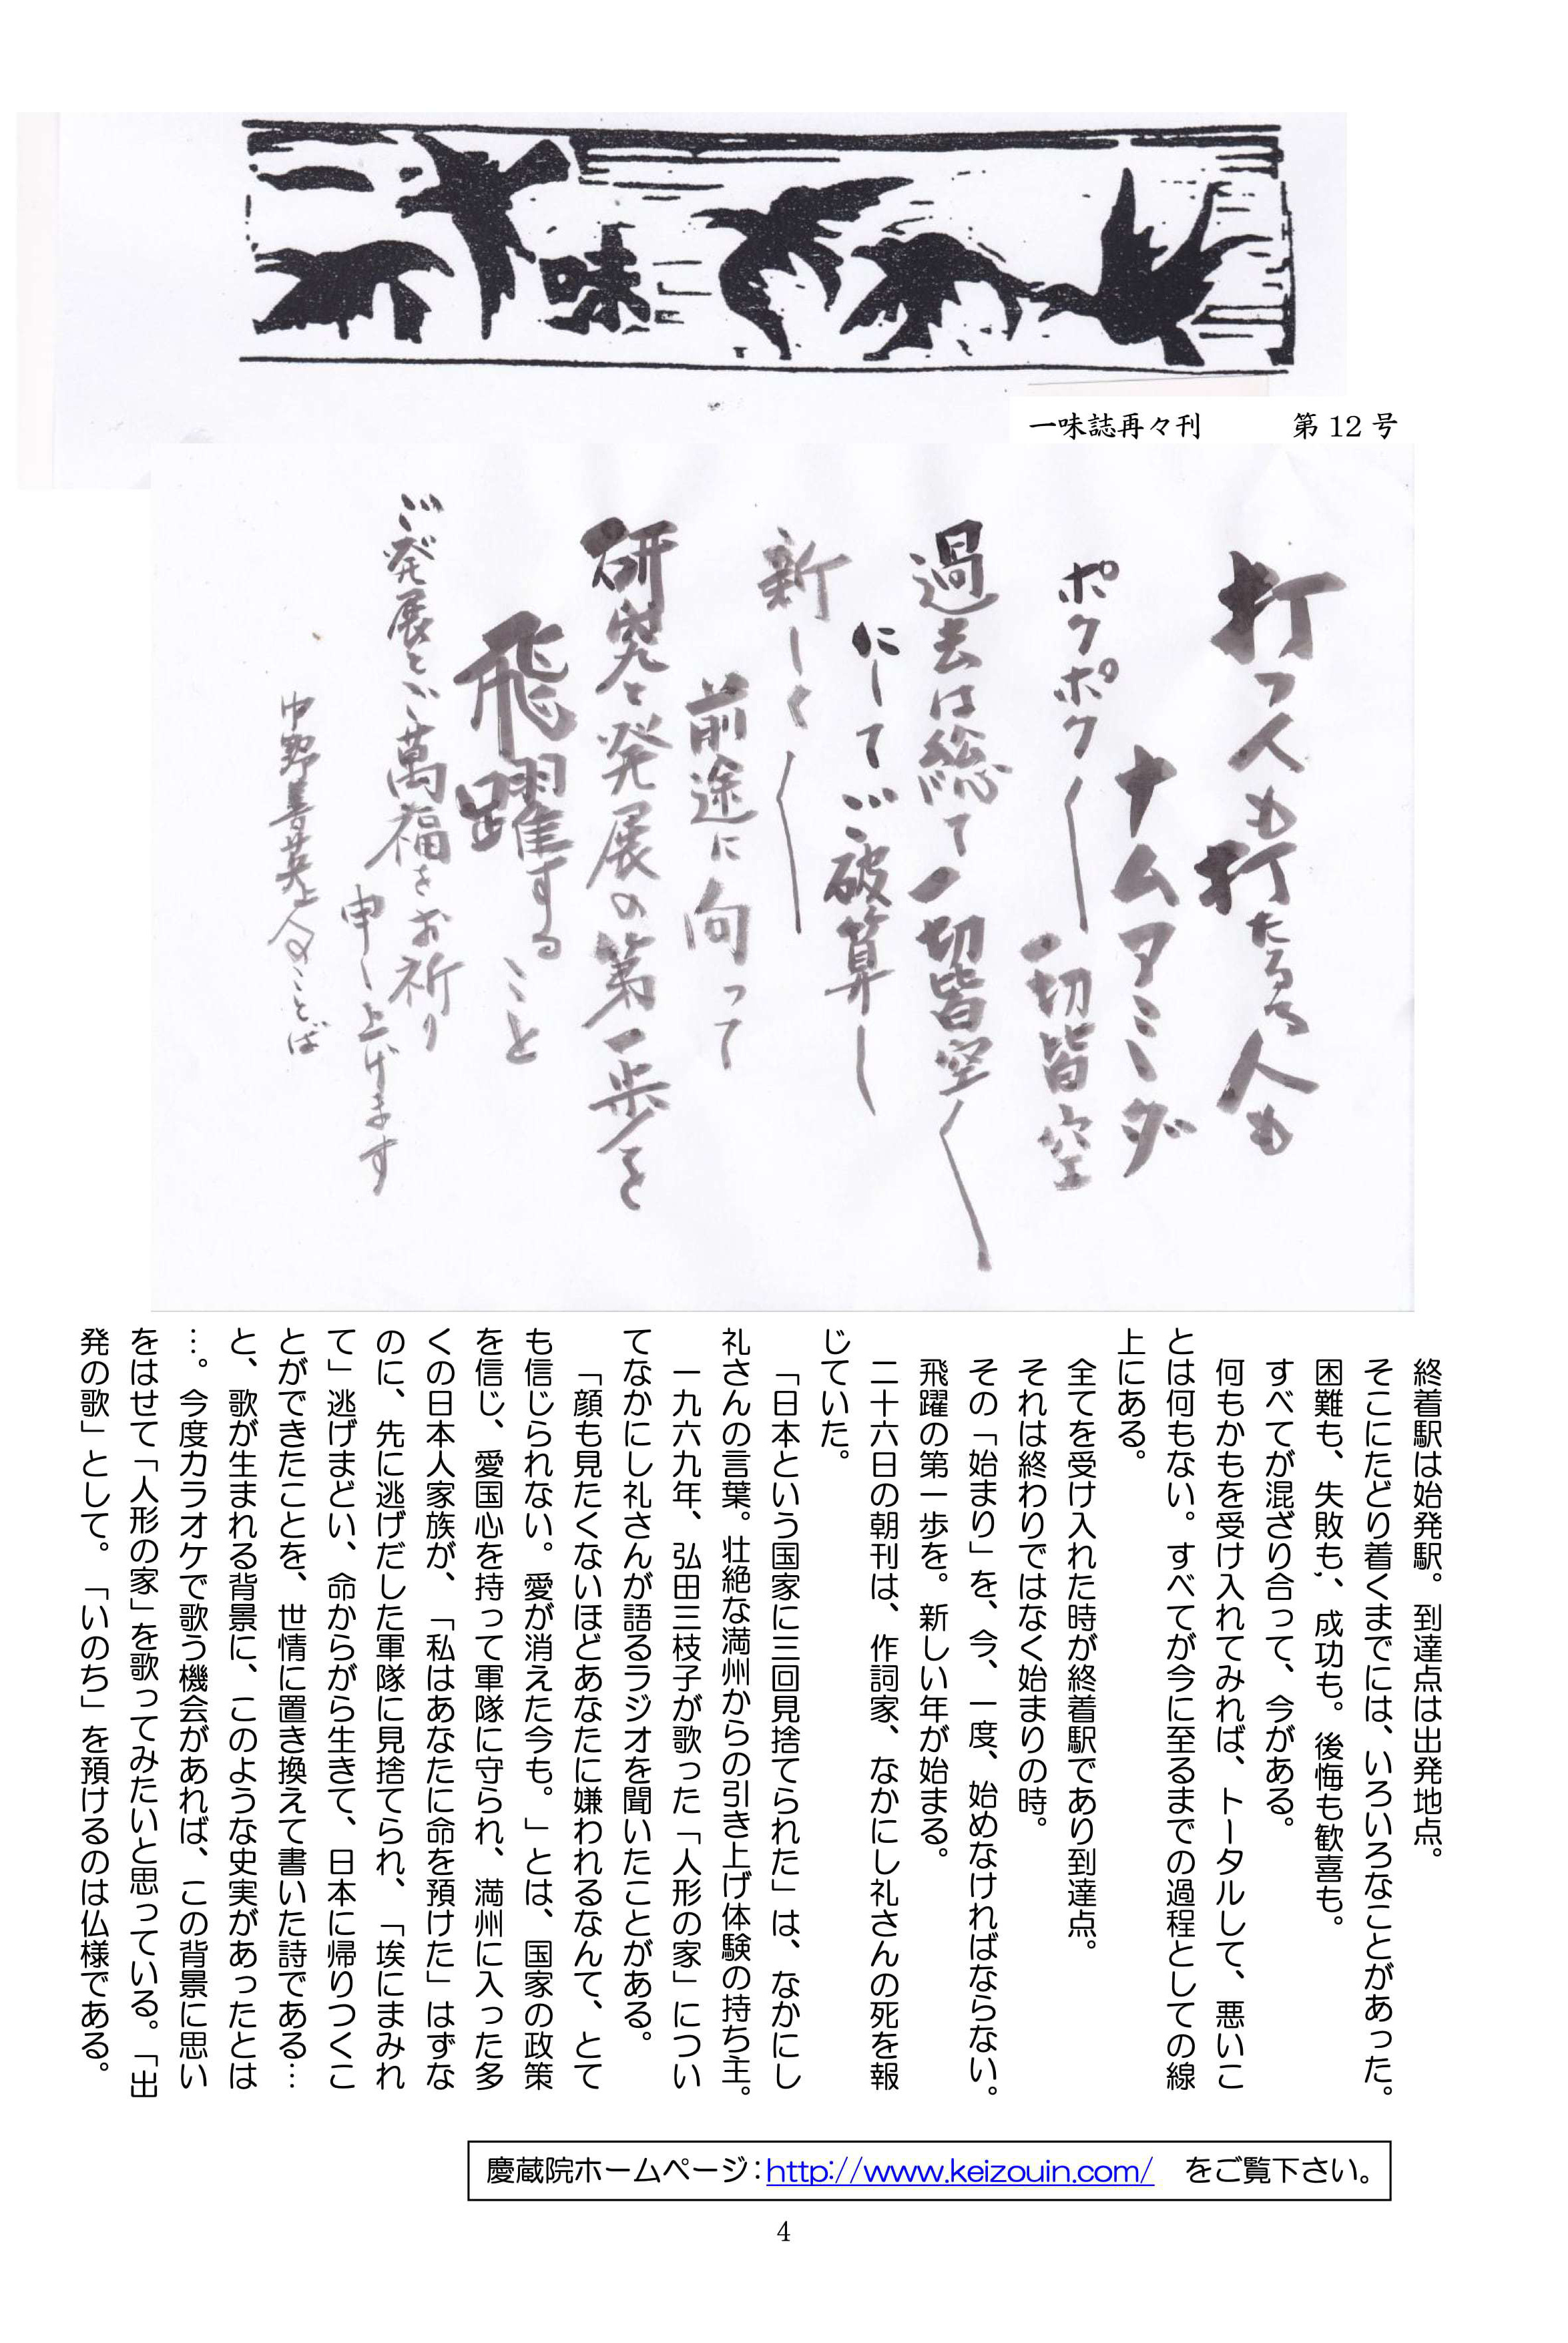 一味
一味誌再々刊 第12号
打つ人も打たるる人も
ナムアミダ
ポクポク〱一切皆空
過去は総て一切皆空〱
にしてご破算し
新しく〱
前途に向って
研究と発展の第一歩を
飛躍すること
ご発展とご萬福をお祈り
申し上げます
中野善英上人のことば
終着駅は始発駅。到達点は出発地点。
そこにたどり着くまでには、いろいろなことがあった。
困難も、失敗も、成功も。後悔も歓喜も。
すべてが混ざり合って、今がある。
何もかもを受け入れてみれば、トータルして、悪いこ
とは何もない。すべてが今に至るまでの過程としての線
上にある。
全てを受け入れた時が終着駅であり到達点。
それは終わりではなく始まりの時。
その「始まり」を、今、一度、始めなければならない。
飛躍の第一歩を。新しい年が始まる。
二十六日の朝刊は、作詞家、なかにし礼さんの死を報
じていた。
「日本という国家に三回見捨てられた」は、なかにし
礼さんの言葉。壮絶な満州からの引き上げ体験の持ち主。
一九六九年、弘田三枝子が歌った「人形の家」につい
てなかにし礼さんが語るラジオを聞いたことがある。
「顔も見たくないほどあなたに嫌われるなんて、とて
も信じられない。愛が消えた今も。」とは、国家の政策
を信じ、愛国心を持って軍隊に守られ、満州に入った多
くの日本人家族が、「私はあなたに命を預けた」はずな
のに、先に逃げだした軍隊に見捨てられ、「埃にまみれ
て」逃げまどい、命からがら生きて、日本に帰りつくこ
とができたことを、世情に置き換えて書いた詩である…
と、歌が生まれる背景に、このような史実があったとは
…。今度カラオケで歌う機会があれば、この背景に思い
をはせて「人形の家」を歌ってみたいと思っている。「出
発の歌」として。「いのち」を預けるのは仏様である。
慶蔵院ホームページ：http://www.keizouin.com/ をご覧下さい。
4